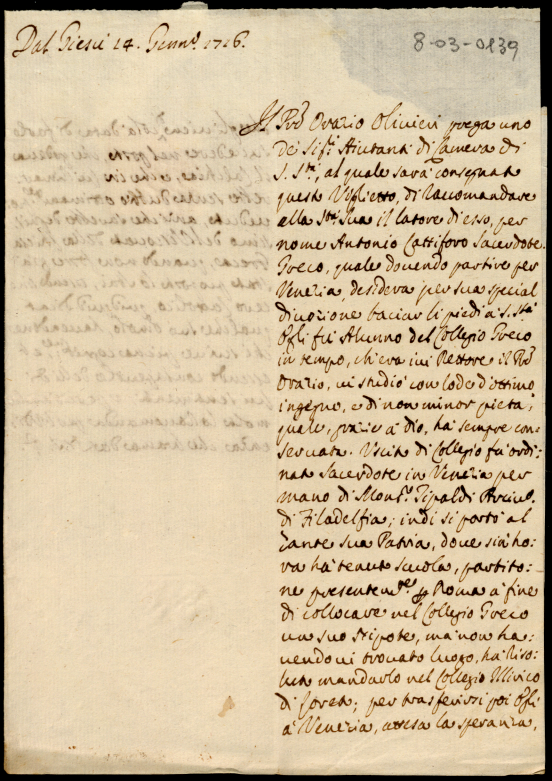 Dal Giesù 14. Genn.º 1716.
8-03-0139
Il P̃re Orazio Olivieri prega uno
de' Sig.ri Aiutanti di Camera di
S. S.tà, al quale sarà consegnato
questo Viglietto, di raccomandare
alla S.tà Sua il latore d'esso, per
nome Antonio Cattiforo Sacerdote
Greco, quale dovendo partire per
Venezia, desidera per sua special
divozione baciar li piedi à S. S.tà
Egli fù Alunno del Collegio Greco
in tempo, ch'era ivi Rettore il P̃re
Orazio, vi studiò con lode d'ottimo
ingegno, e di non minor pietà,
quale, grazie à Dio, hà sempre con=
servata. Uscito di Collegio fù ordi=
nato Sacerdote in Venezia per
mano di Mons.r Tipaldi Arciv.o
di Filadelfia; indi si portò al
Zante sua Patria, dove sin'ho=
ra hà tenuto scuola, partito=
ne presentem.te p̱ Roma à fine
di collocare nel Collegio Greco
un suo Nipote, mà non ha=
vendovi trovato luogo, hà riso=
luto mandarlo nel Collegio Illirico
di Loreto; per trasferirsi poi Egli
à Venezia, attesa la speranza,